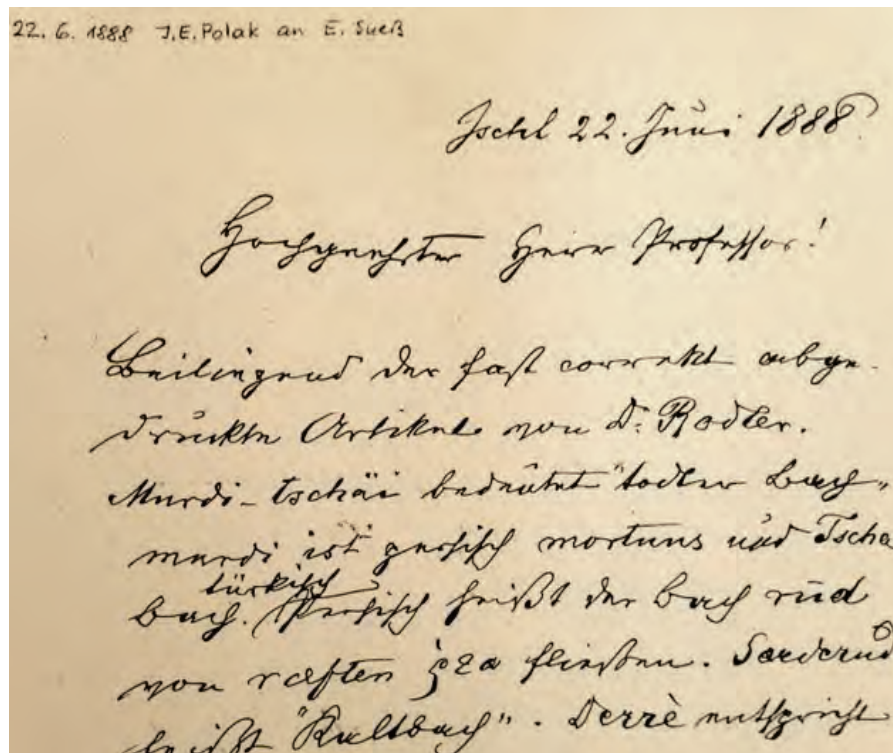 22. 6. 1888 J.E. Polak an E. Sueß
Ischl 22. Juni 1888.
Hochgeehrter Herr Professor!
Beiliegend der fast correkt abge-
druckte Artikel von Dr. Rodler.
Murdi-tschäi bedeutet "todter Bach"
murdi ist persisch mortuus und Tscha
türkisch
Bach. Persisch heißt der Bach rūd
von raeften fließen. Särderūd
heißt "Kaltbach". Derrè entspricht